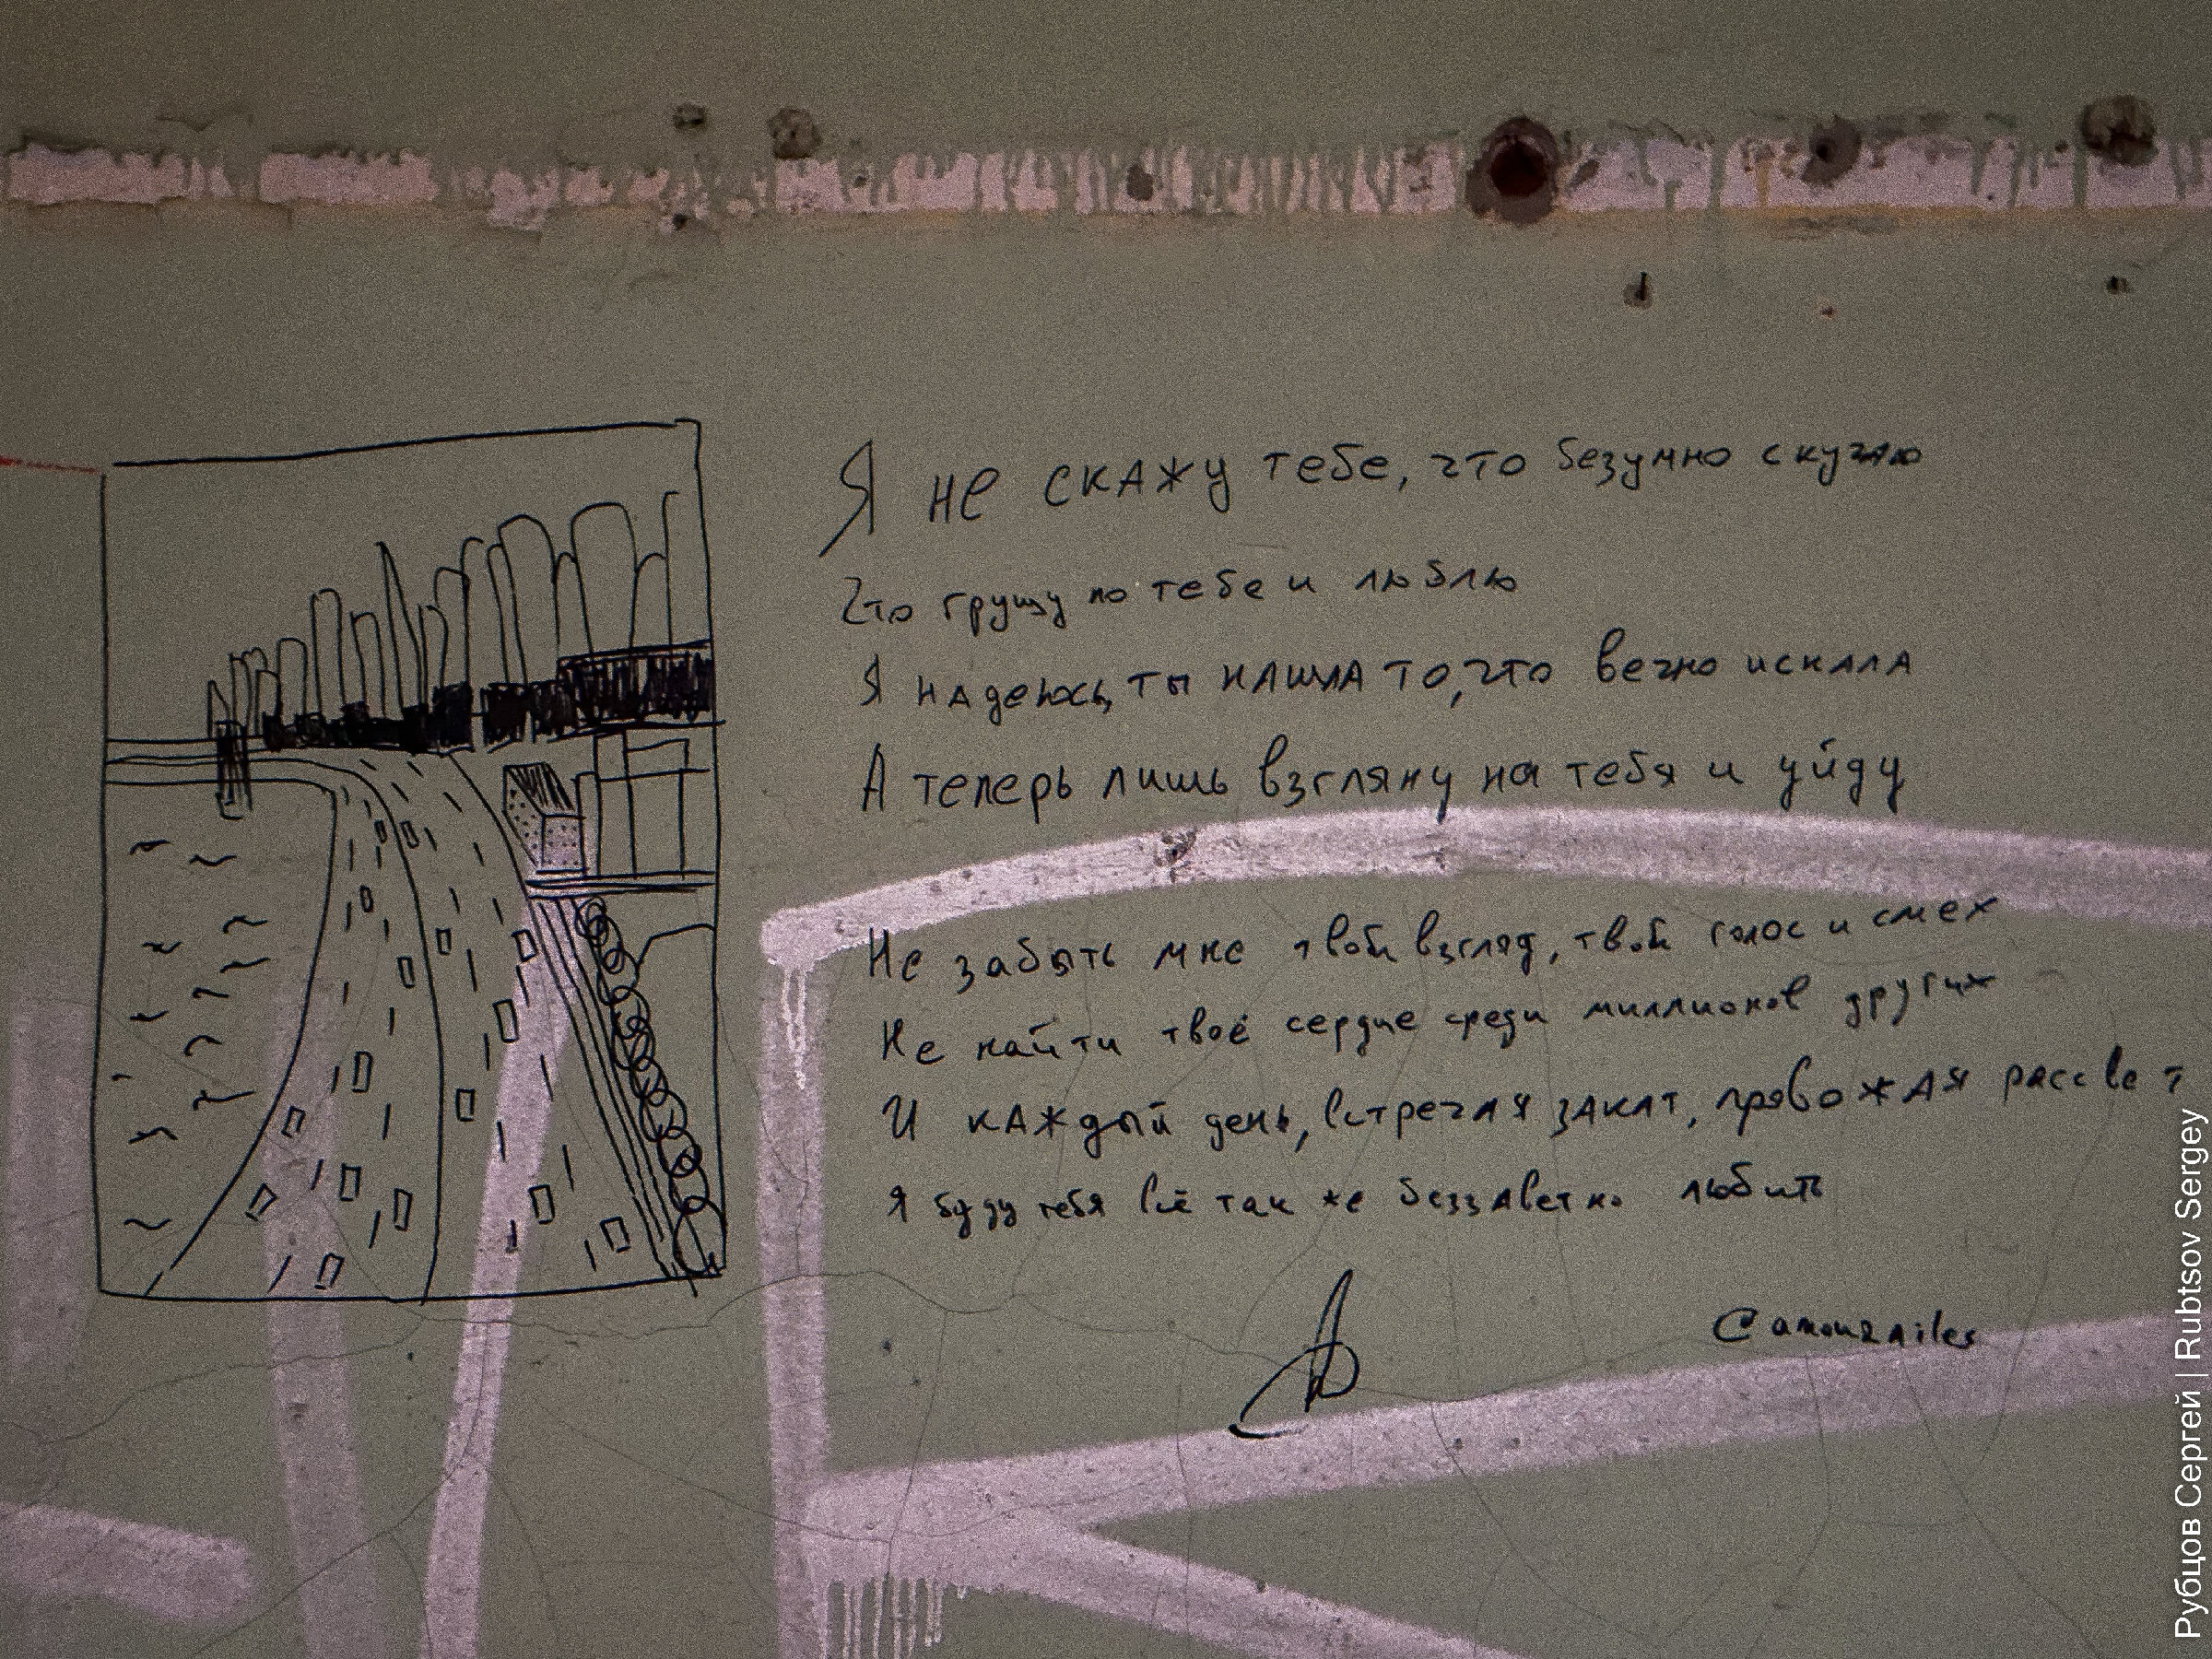 Я не скажу тебе, что безумно скучаю
Что грущу по тебе и люблю
Я надеюсь, ты нашла то, что вечно искала
А теперь лишь взгляну на тебя и уйду
Не забыть мне твой взгляд, твой голос и смех
Не найти твоё сердце среди миллионов других
И каждый день, встречая закат, провожая рассвет
Я буду тебя всё так же беззаветно любить
Рубцов Сергей | Rubtsov Sergey